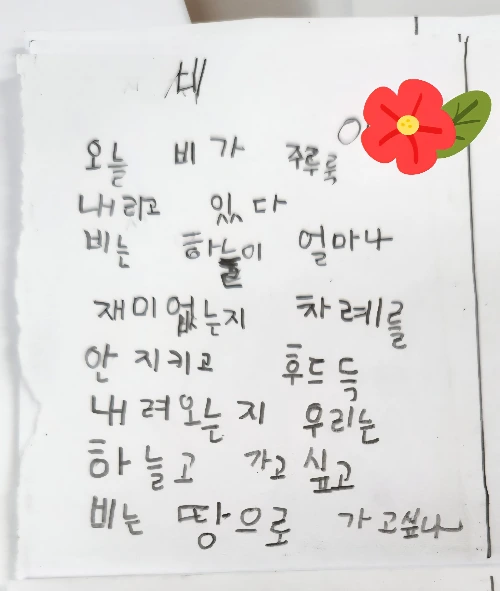 비
오늘 비가 주루룩
내리고 있다
비는 하늘이 얼마나
재미없는지 차례를
안 지키고 후드득
내려오는지 우리는
하늘고 가고싶고
비는 땅으로 가고싶나